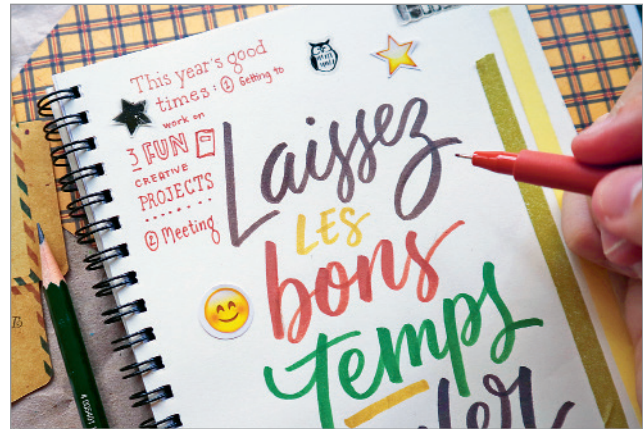 This year's good
times: ① Getting to
work on
3 FUN
CREATIVE
PROJECTS
② Meeting
Laissez
LES
bons
temps
To